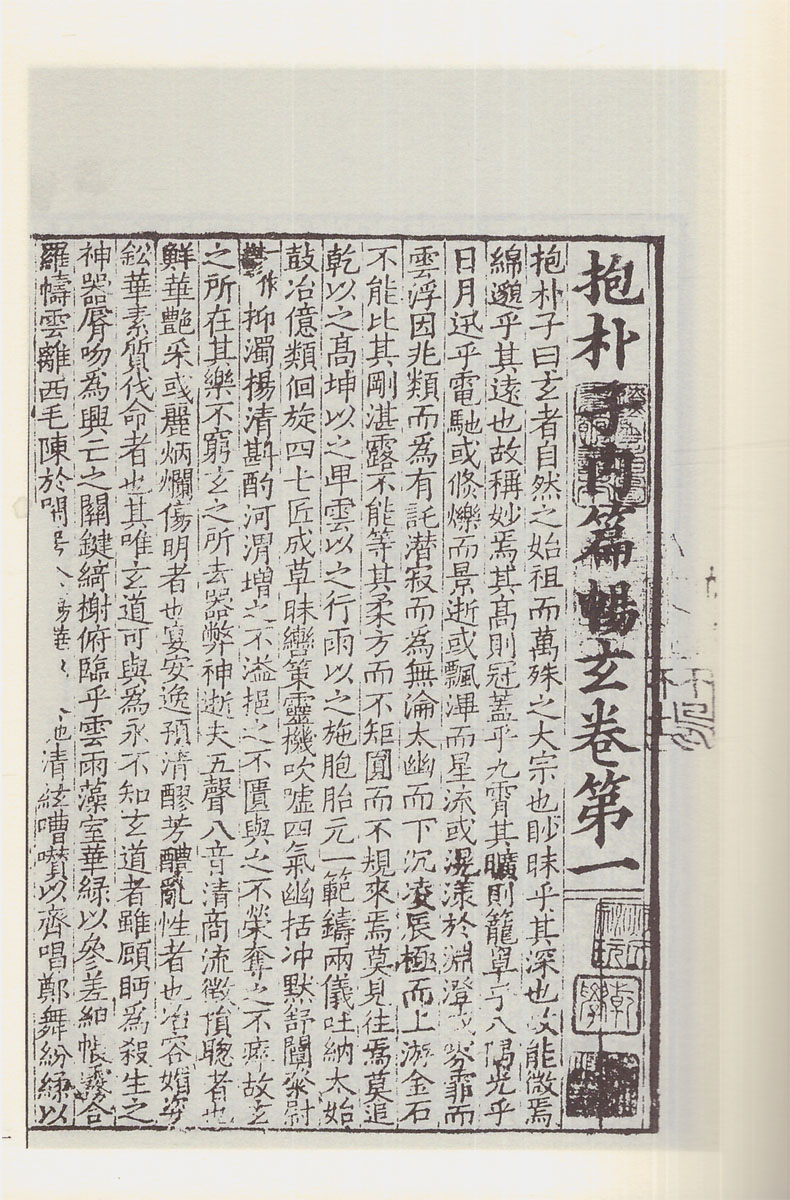 抱朴子内篇暢玄卷第一
抱朴子曰玄者自然之始祖而萬殊之大宗也眇昧乎其深也故能微焉
綿邈乎其遠也故稱妙焉其髙則冠蓋乎九霄其曠則籠罩乎八隅光乎
日月迅乎電馳或倏爍而景逝或飄滭而星流或滉漾於淵澄或雰霏而
雲浮因兆類而為有託潜寂而為無淪太幽而下沉凌辰極而上游金石
不能比其剛湛露不能等其柔方而不矩圓而不規來焉莫見往焉莫追
乾以之髙坤以之卑雲以之行雨以之施胞胎元一範鑄兩儀吐納太始
鼓冶億類佪旋四七匠成草昧轡策靈機吹噓四氣幽括冲默舒闡粲尉
一作鬱抑濁揚清斟酌河渭增之不溢挹之不匱與之不榮奪之不瘁故玄
之所在其樂不窮玄之所去器弊神逝夫五聲八音清商流徵損聦者也
鮮華艷采彧麗炳爛傷明者也宴安逸預清醪芳醴亂性者也冶容媚姿
鈆華素質伐命者也其唯玄道可與為永不知玄道者雖顧眄為殺生之
神器脣吻為興亡之關鍵綺榭俯臨乎雲雨藻室華緑以參差組帳霧合
羅幬雲離西毛陳於閒也清絃嘈囋以齊唱鄭舞紛緑以